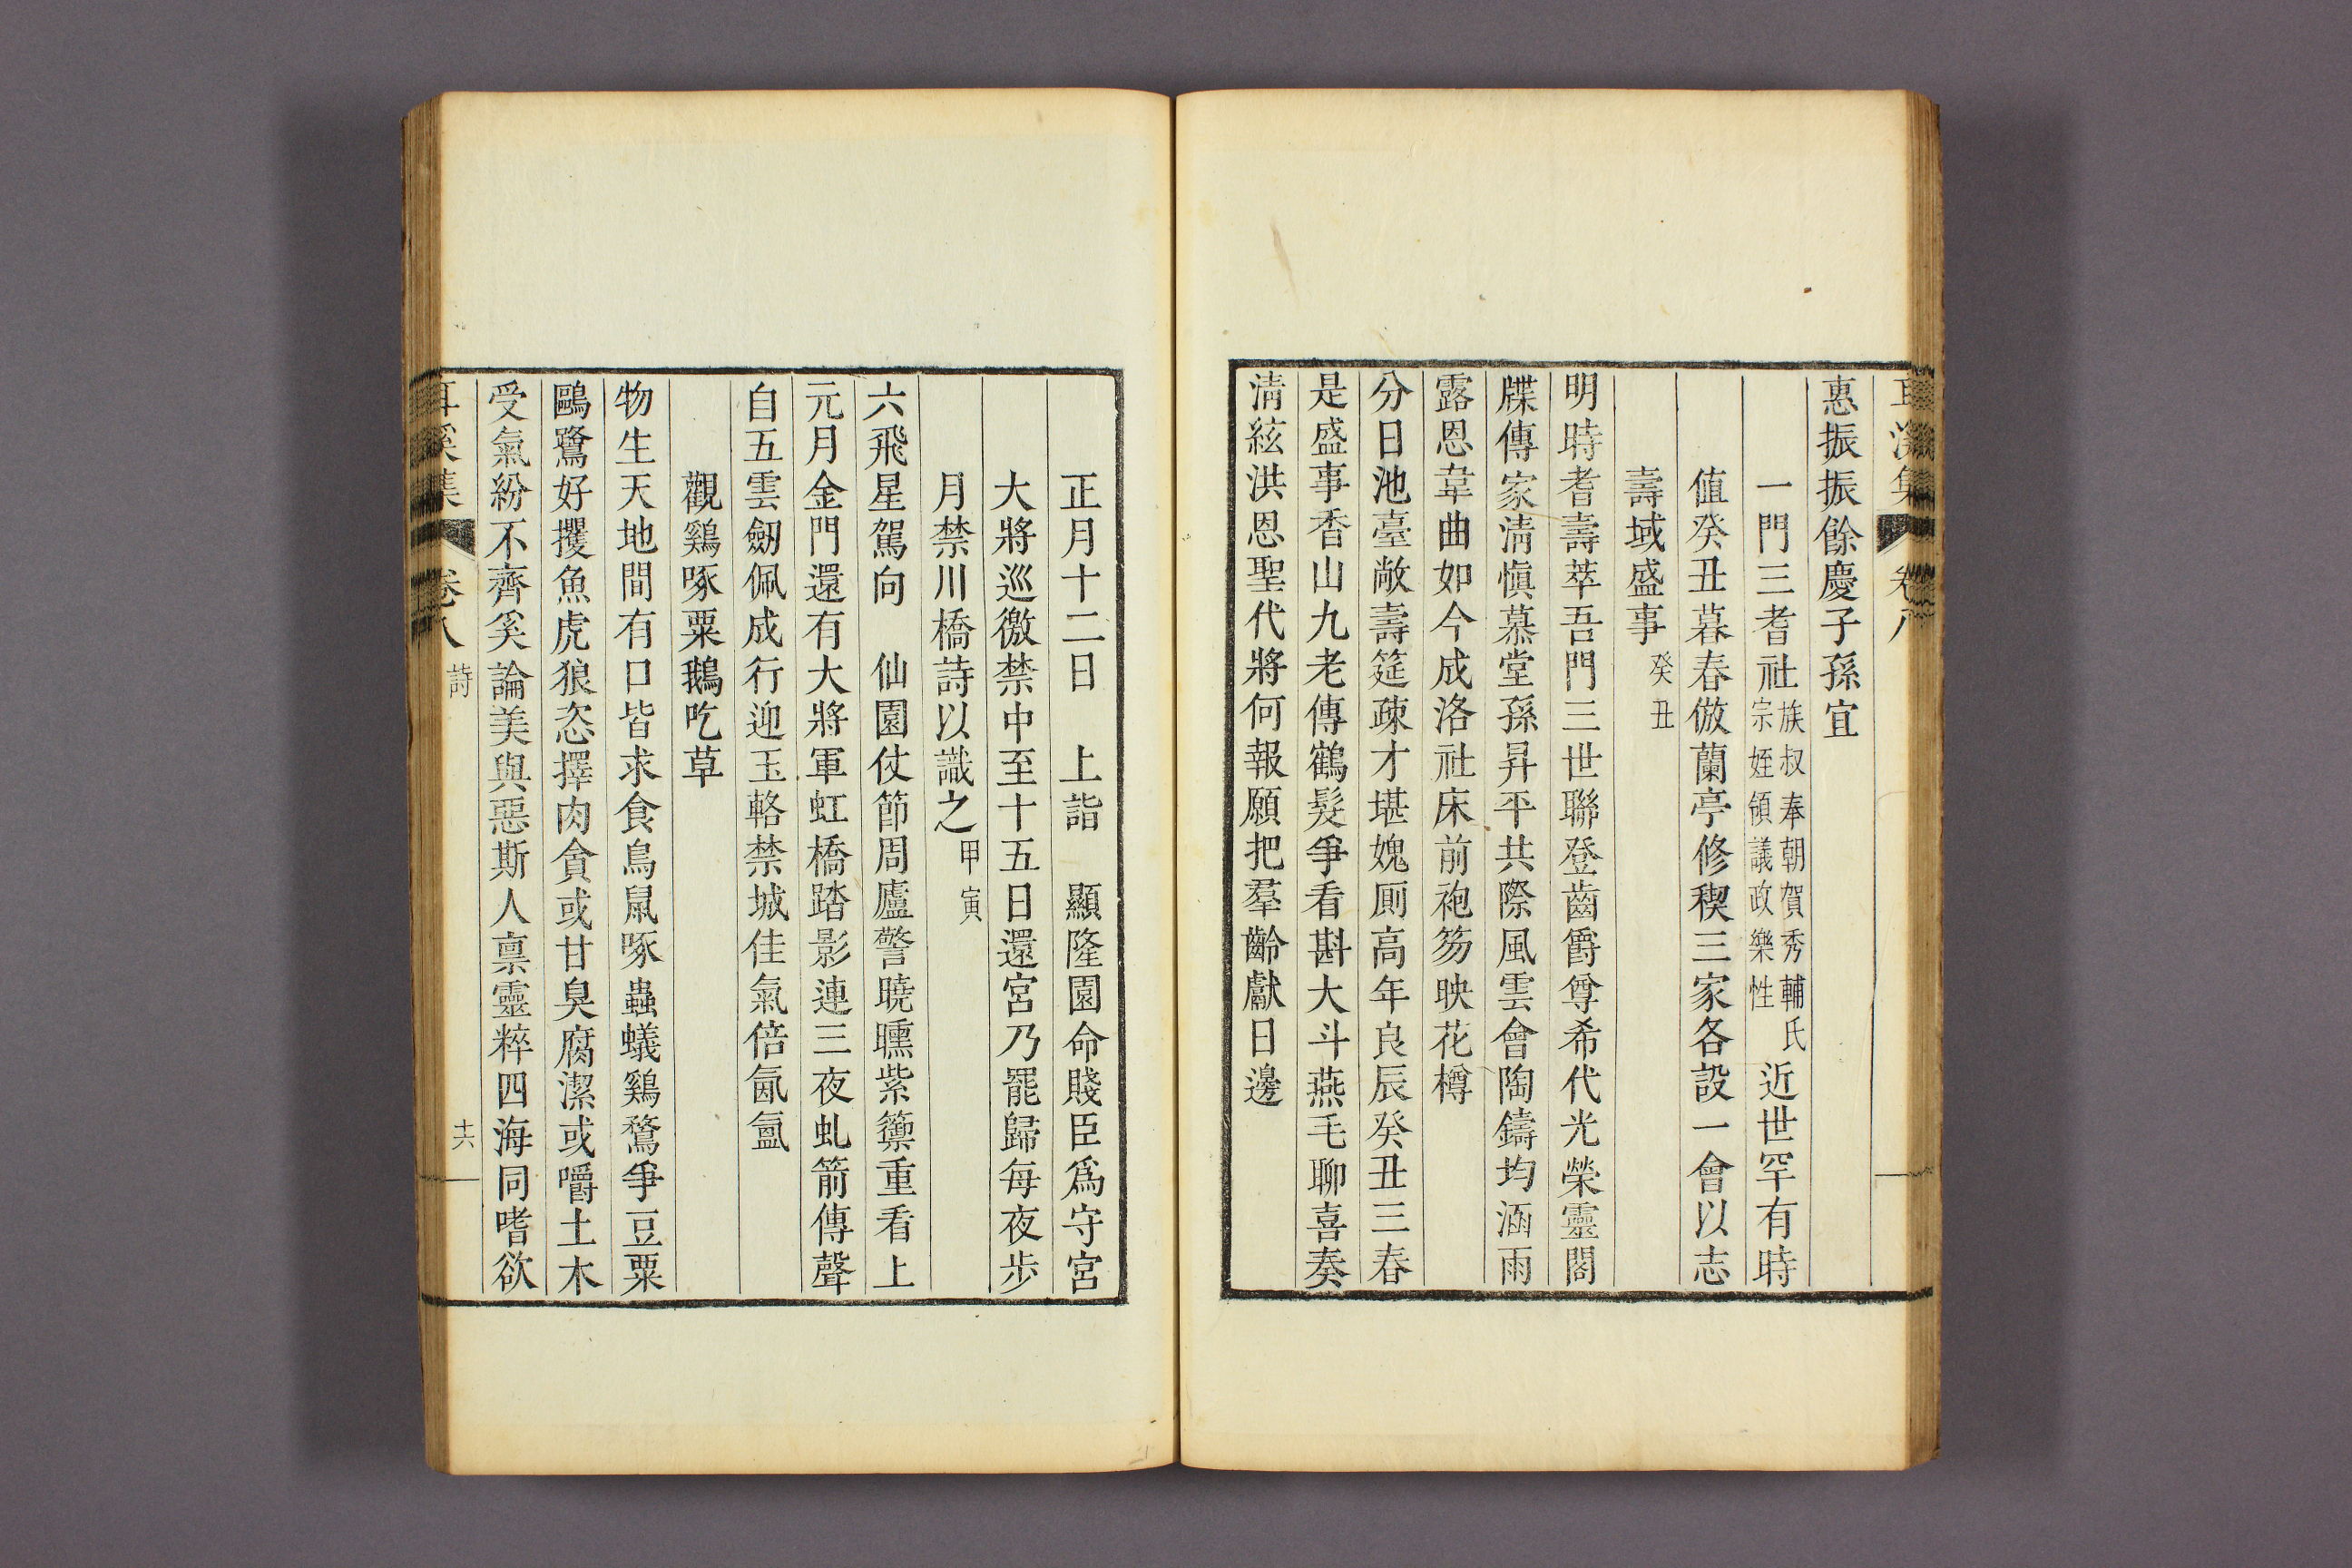 耳溪集 卷八
惠振振餘慶子孫宜
一門三耆社族叔奉朝賀秀輔氏宗姪領議政樂性近世罕有時
值癸丑暮春倣蘭亭修稧三家各設一會以志
壽域盛事癸丑
明時耆壽萃吾門三世聯登齒爵尊希代光榮靈閣
牒傳家淸愼慕堂孫昇平共際風雲會陶鑄均涵雨
露恩韋曲如今成洛社床前袍笏映花樽
分日池臺敞壽筵疎才堪媿厠高年良辰癸丑三春
是盛事香山九老傳鶴髮爭看斟大斗燕毛聊喜奏
淸絃洪恩聖代將何報願把羣齡獻日邊
正月十二日 上詣 顯隆園命賤臣爲守宮
大將巡徼禁中至十五日還宮乃罷歸每夜步
月禁川橋詩以識之甲寅
六飛星駕向 仙園仗節周廬警曉曛紫籞重看上
元月金門還有大將軍虹橋踏影連三夜虬箭傳聲
自五雲劒佩成行迎玉輅禁城佳氣倍氤氳
觀鷄啄粟鵝吃草
物生天地間有口皆求食鳥鼠啄蟲蟻鷄鶩爭豆粟
鷗鷺好攫魚虎狼恣擇肉貪或甘臭腐潔或嚼土木
受氣紛不齊奚論美與惡斯人禀靈粹四海同嗜欲
耳溪集 卷八 詩 十六